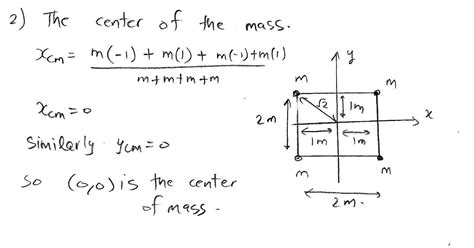 2) The center of the mass.
xcm = m(-1) + m(1) + m(-1)+m(1)
m+m+m+m
xcm = 0
Similarly ycm = 0
So (0,0) is the center
of mass.
y
m
m
√2
1m
x
2m
1m
1m
m
m
2m.